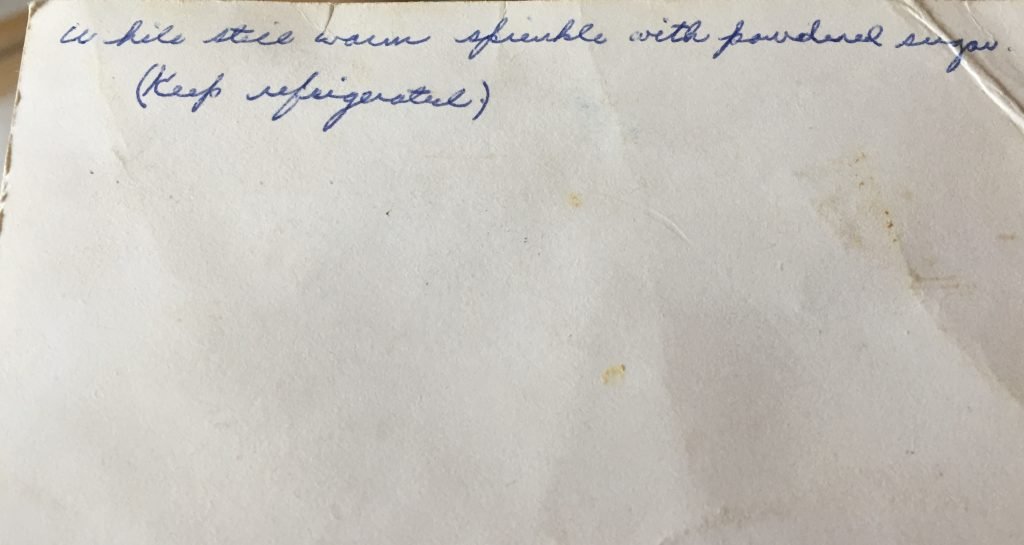 While still warm sprinkle with powdered sugar.
(Keep refrigerated.)